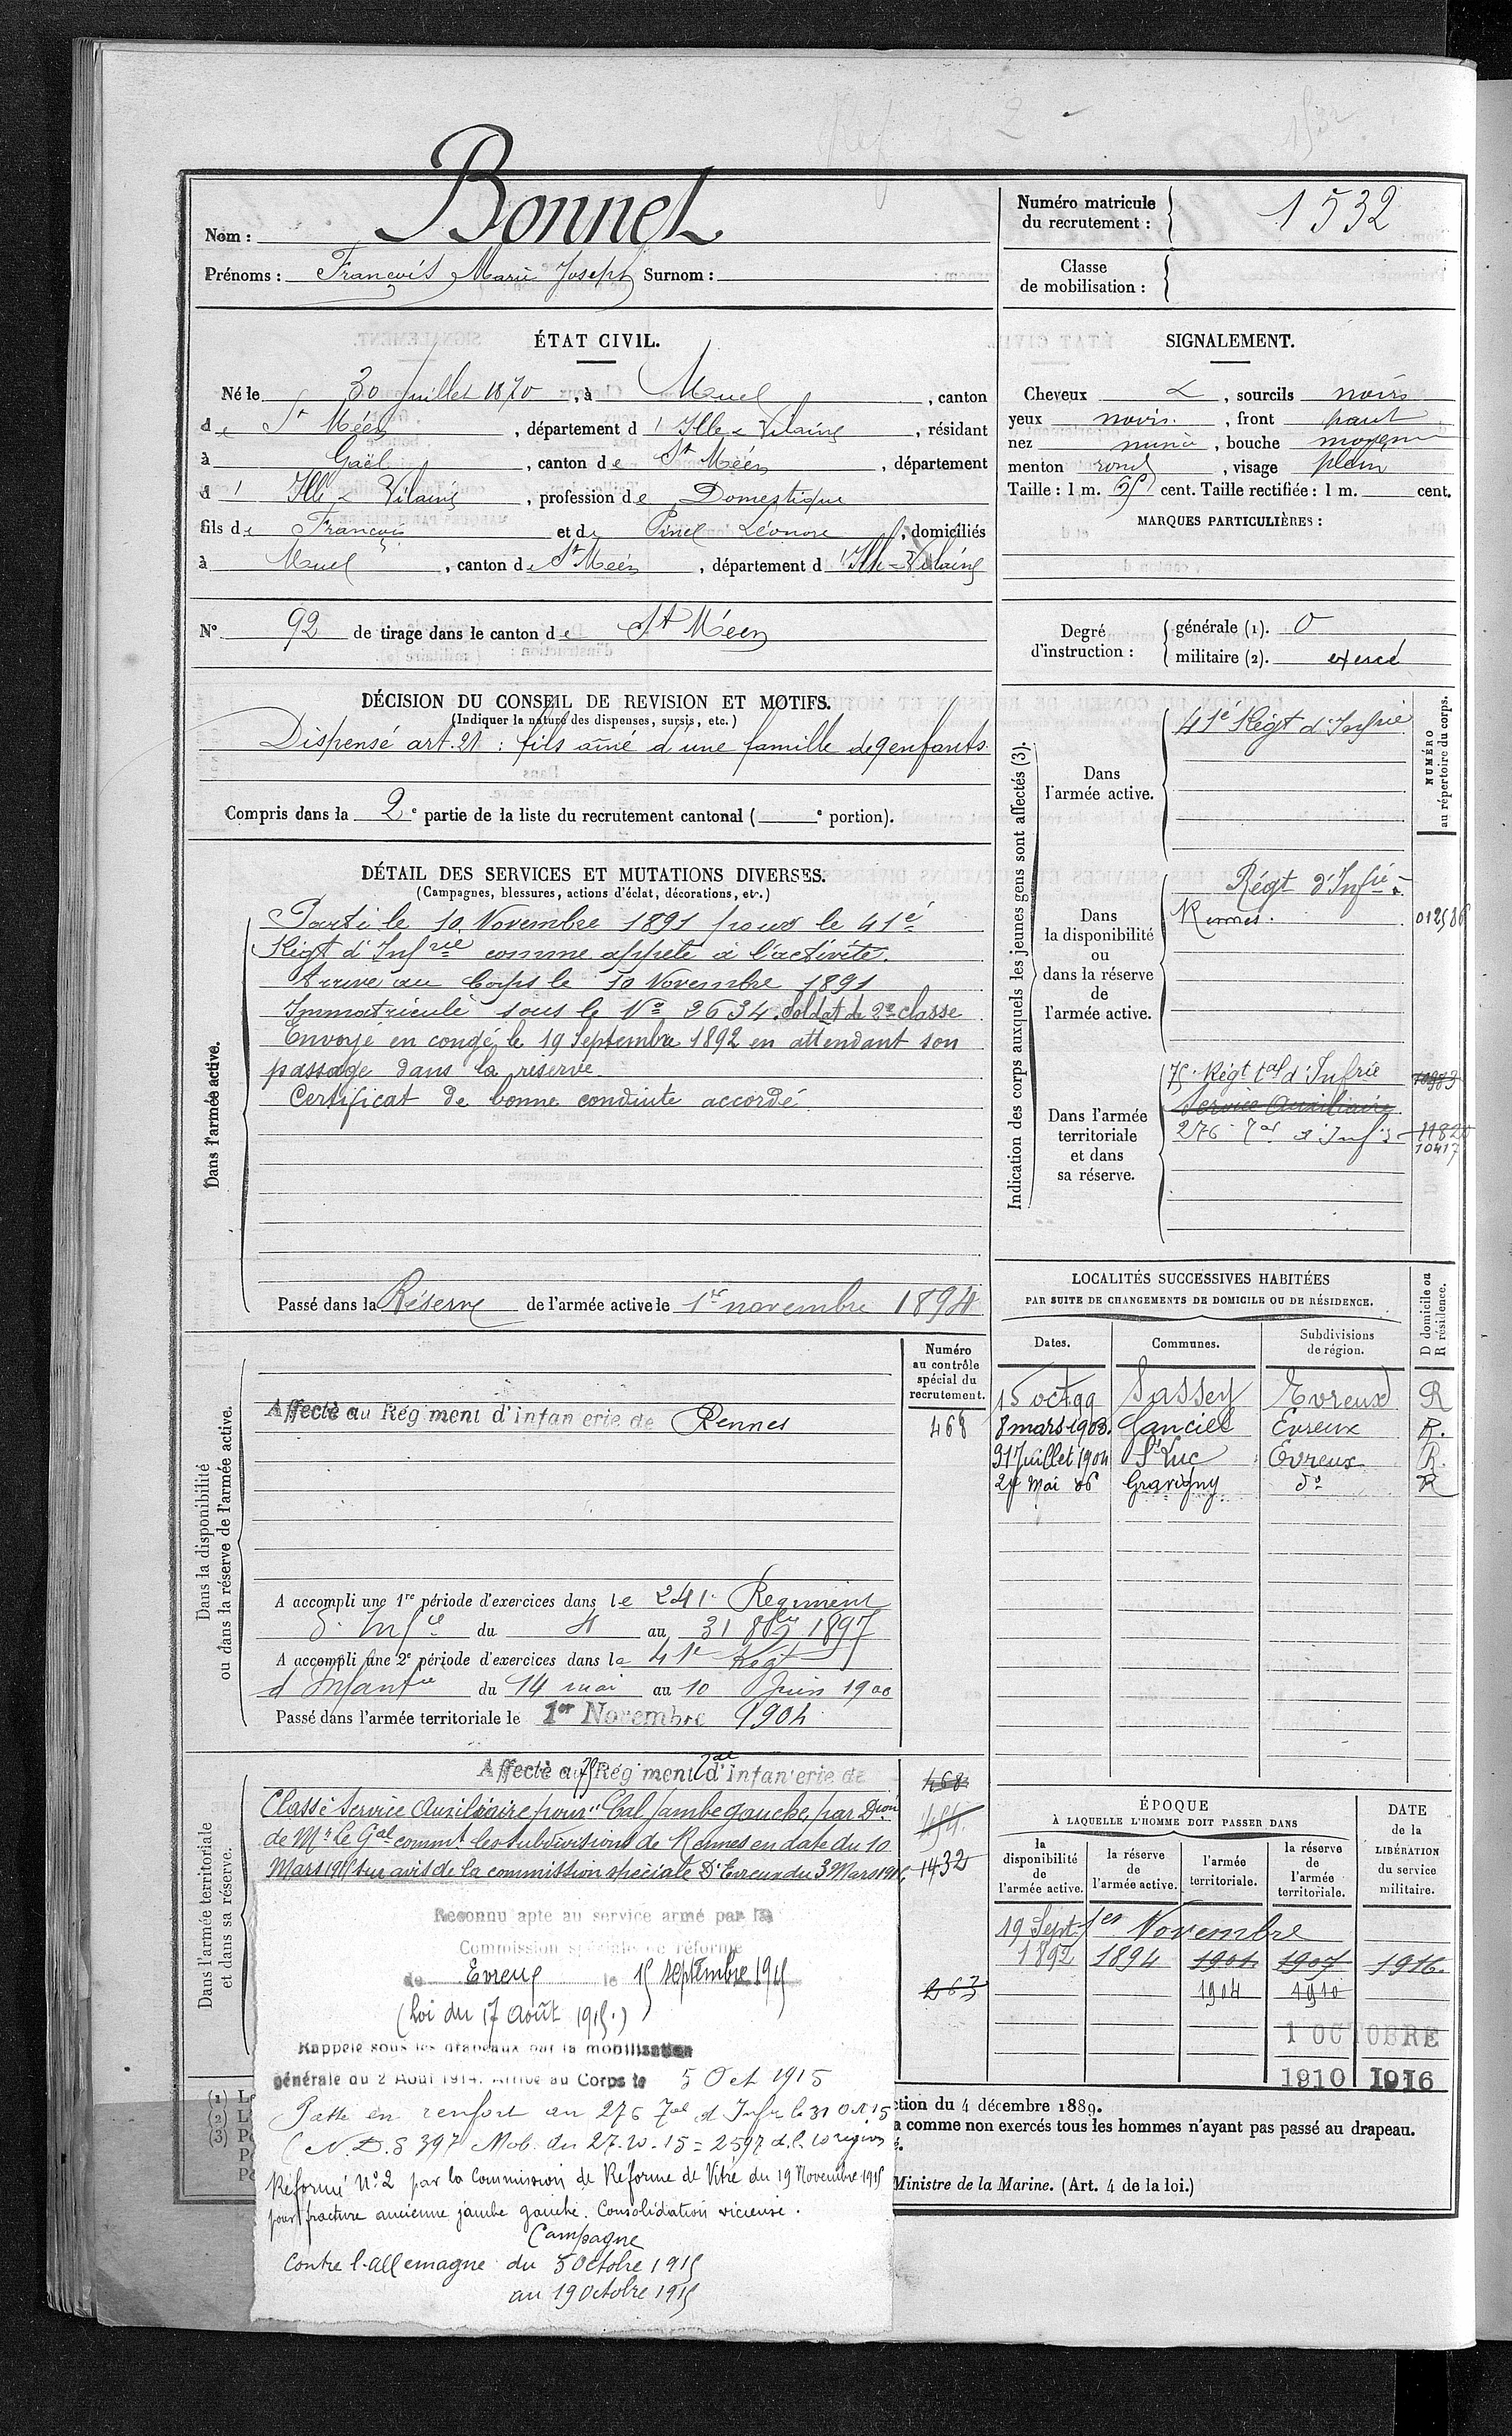 1532
Nom : Bonnet
Prénoms : François Marie Joseph Surnom :
Numéro matricule du recrutement : 1532
Classe de mobilisation :
ÉTAT CIVIL.
Né le 30 Juillet 1870, à Muel, canton
de St Méen, département d'Ille & Vilaine, résidant
à Gaël, canton de St Méen, département
d'Ille & Vilaine, profession de Domestique
fils de François et de Pinel Léonore, domiciliés
à Muel, canton de St Méen, département d'Ille-&-Vilaine
N° 92 de tirage dans le canton de St Méen
SIGNALEMENT.
Cheveux &, sourcils noirs
yeux noirs, front haut
nez mince, bouche moyenne
menton rond, visage plein
Taille : 1 m. 65 cent. Taille rectifiée : 1 m. cent.
MARQUES PARTICULIÈRES :
Degré d'instruction :
générale (1). 0
militaire (2). exercé
DÉCISION DU CONSEIL DE REVISION ET MOTIFS.
(Indiquer la nature des dispenses, sursis, etc.)
Dispensé art. 21 : fils aîné d'une famille de 9 enfants
Compris dans la 2e partie de la liste du recrutement cantonal ( e portion).
DÉTAIL DES SERVICES ET MUTATIONS DIVERSES.
(Campagnes, blessures, actions d'éclat, décorations, etc.)
Dans l'armée active.
Parti le 10 Novembre 1891 pour le 41e
Régt d'Infrie comme appelé à l'activité.
Arrivé au Corps le 10 Novembre 1891
Immatriculé sous le No 2634. Soldat de 2e classe
Envoyé en congé le 19 Septembre 1892 en attendant son
passage dans la réserve.
Certificat de bonne conduite accordé
Passé dans la Réserve de l'armée active le 1er novembre 1894
Indication des corps auxquels les jeunes gens sont affectés (3).
NUMÉRO au répertoire du corps.
Dans l'armée active.
41e Régt d'Infrie
Dans la disponibilité ou dans la réserve de l'armée active.
Régt d'Infie de
Rennes.
012586
Dans l'armée territoriale et dans sa réserve.
75e Régt tal d'Infrie
10983
Service Auxiliaire
276e Tal d'Infie
10417
LOCALITÉS SUCCESSIVES HABITÉES
PAR SUITE DE CHANGEMENTS DE DOMICILE OU DE RÉSIDENCE.
Dates. Communes. Subdivisions de région. D domicile ou R résidence.
15 oct 99 Sassey Evreux R
8 mars 1903. Canciel Evreux R.
31 Juillet 1904 St Luc Evreux R.
27 Mai 06 Gravigny do R
Dans la disponibilité ou dans la réserve de l'armée active.
Numéro au contrôle spécial du recrutement.
Affecté au Régiment d'infanterie de Rennes
468
A accompli une 1re période d'exercices dans le 241e Régiment
d'Infie du 4 au 31 8bre 1897
A accompli une 2e période d'exercices dans le 41e Régt
d'Infantie du 14 mai au 10 Juin 1900
Passé dans l'armée territoriale le 1er Novembre 1904
Dans l'armée territoriale et dans sa réserve.
Affecté au 75 Régiment Tal d'infanterie de
468
454
1432
263
Classé Service Auxiliaire pour "Cal jambe gauche, par Dion
de Mr le Gal commt les subdivisions de Rennes en date du 10
Mars 1915 sur avis de la commission spéciale D'Evreux du 3 Mars 1915
Reconnu apte au service armé par la
Commission spéciale de réforme
de Evreux le 15 septembre 1915
(Loi du 17 Août 1915.)
Rappelé sous les drapeaux par la mobilisation
générale du 2 Août 1914. Arrivé au Corps le 5 Oct 1915
Passé en renfort au 276 Tal d'Infie le 31 Oct 15
(N.D.§ 397 Mob. du 27.10.15 = 2597 d.l. 10 région
Réformé No 2 par la Commission de Réforme de Vitré du 19 Novembre 1915
pour fracture ancienne jambe gauche. Consolidation vicieuse.
Campagne
Contre l'Allemagne du 5 Octobre 1915
au 19 Octobre 1915
ÉPOQUE
À LAQUELLE L'HOMME DOIT PASSER DANS
la disponibilité de l'armée active. la réserve de l'armée active. l'armée territoriale. la réserve de l'armée territoriale.
DATE de la LIBÉRATION du service militaire.
19 Sept 1er Novembre
1892 1894 1901 1907 1916.
1904 1910
1 OCTOBRE
1910 1916
(1)
(2)
(3)
ction du 4 décembre 1889.
a comme non exercés tous les hommes n'ayant pas passé au drapeau.
é.
Ministre de la Marine. (Art. 4 de la loi.)